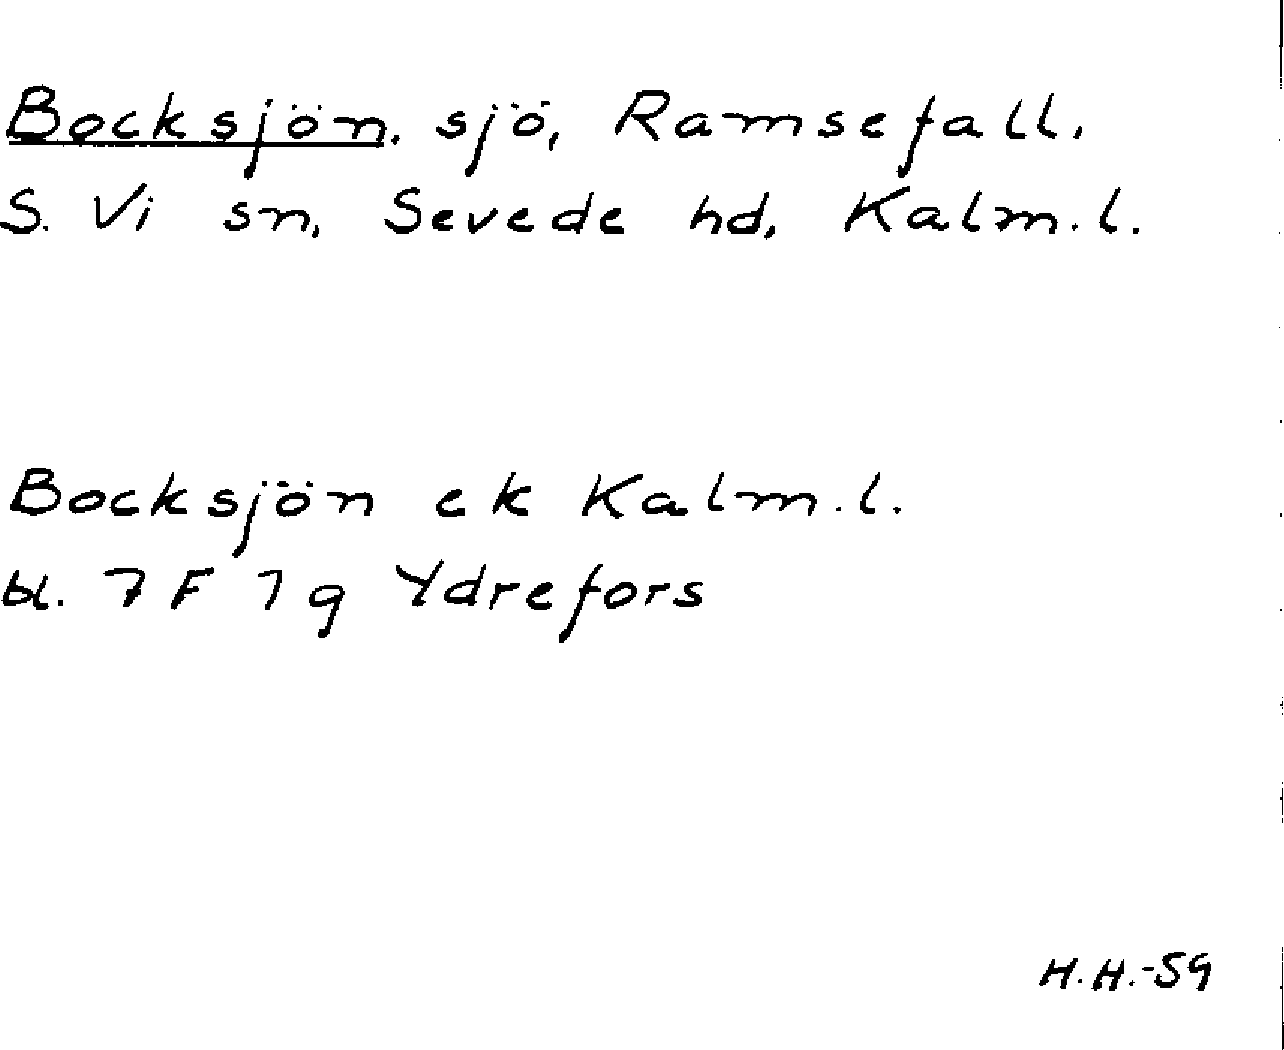 Bocksjön, sjö, Ramsefall,
S. Vi sn, Sevede hd, Kalm.l.
Bocksjön ek Kalm.l.
bl. 7 F 7 g Ydrefors
H.H.-59